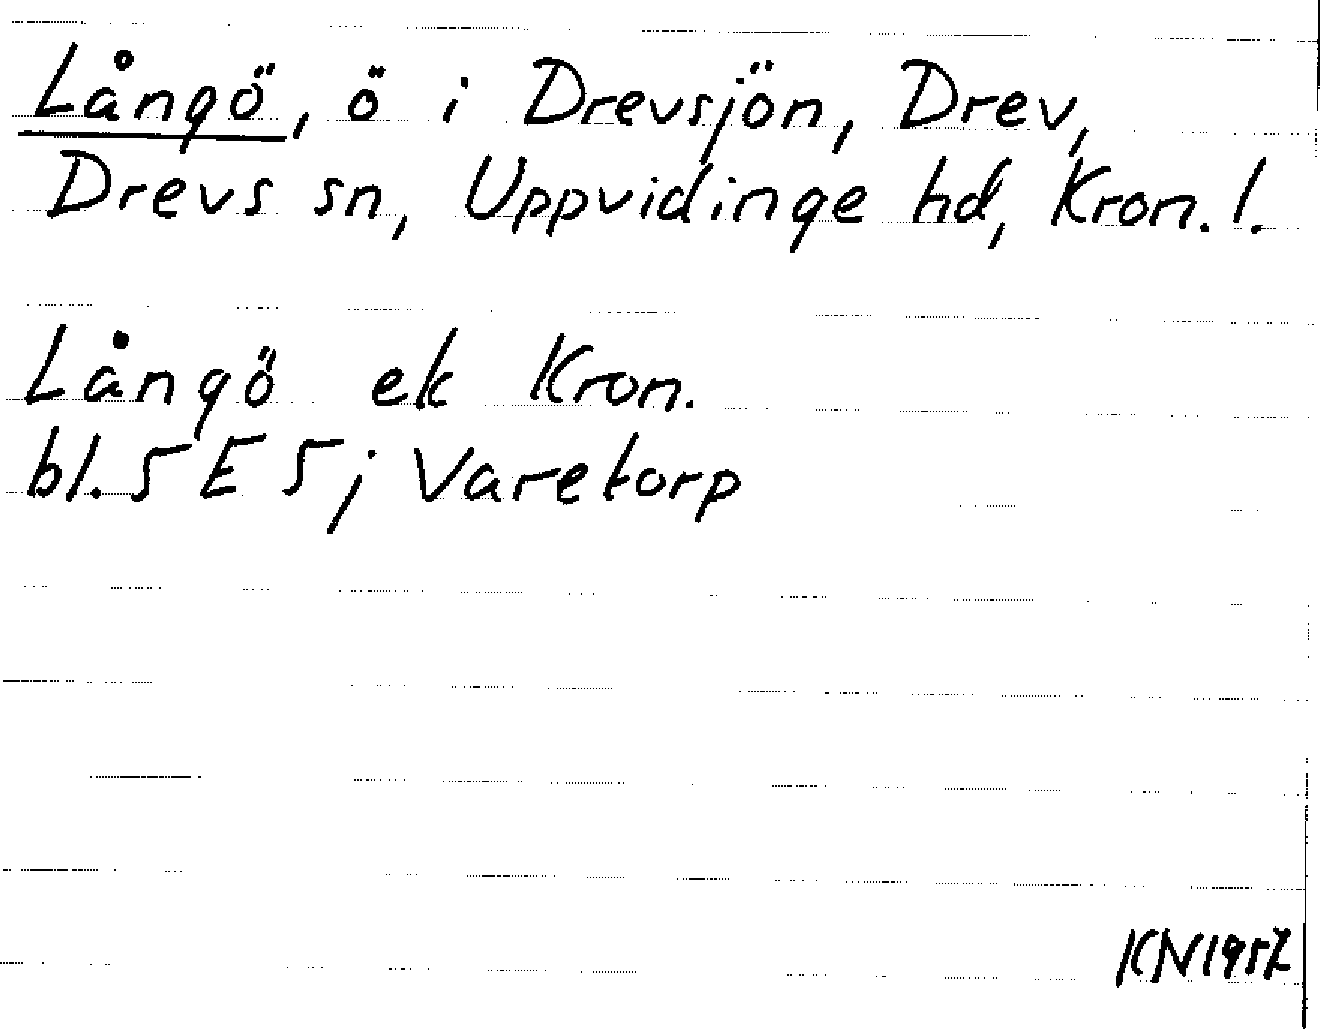 Långö, ö i Drevsjön, Drev,
Drevs sn, Uppvidinge hd, Kron. l.
Långö ek Kron.
bl. 5 E 5j Varetorp
KN 1957